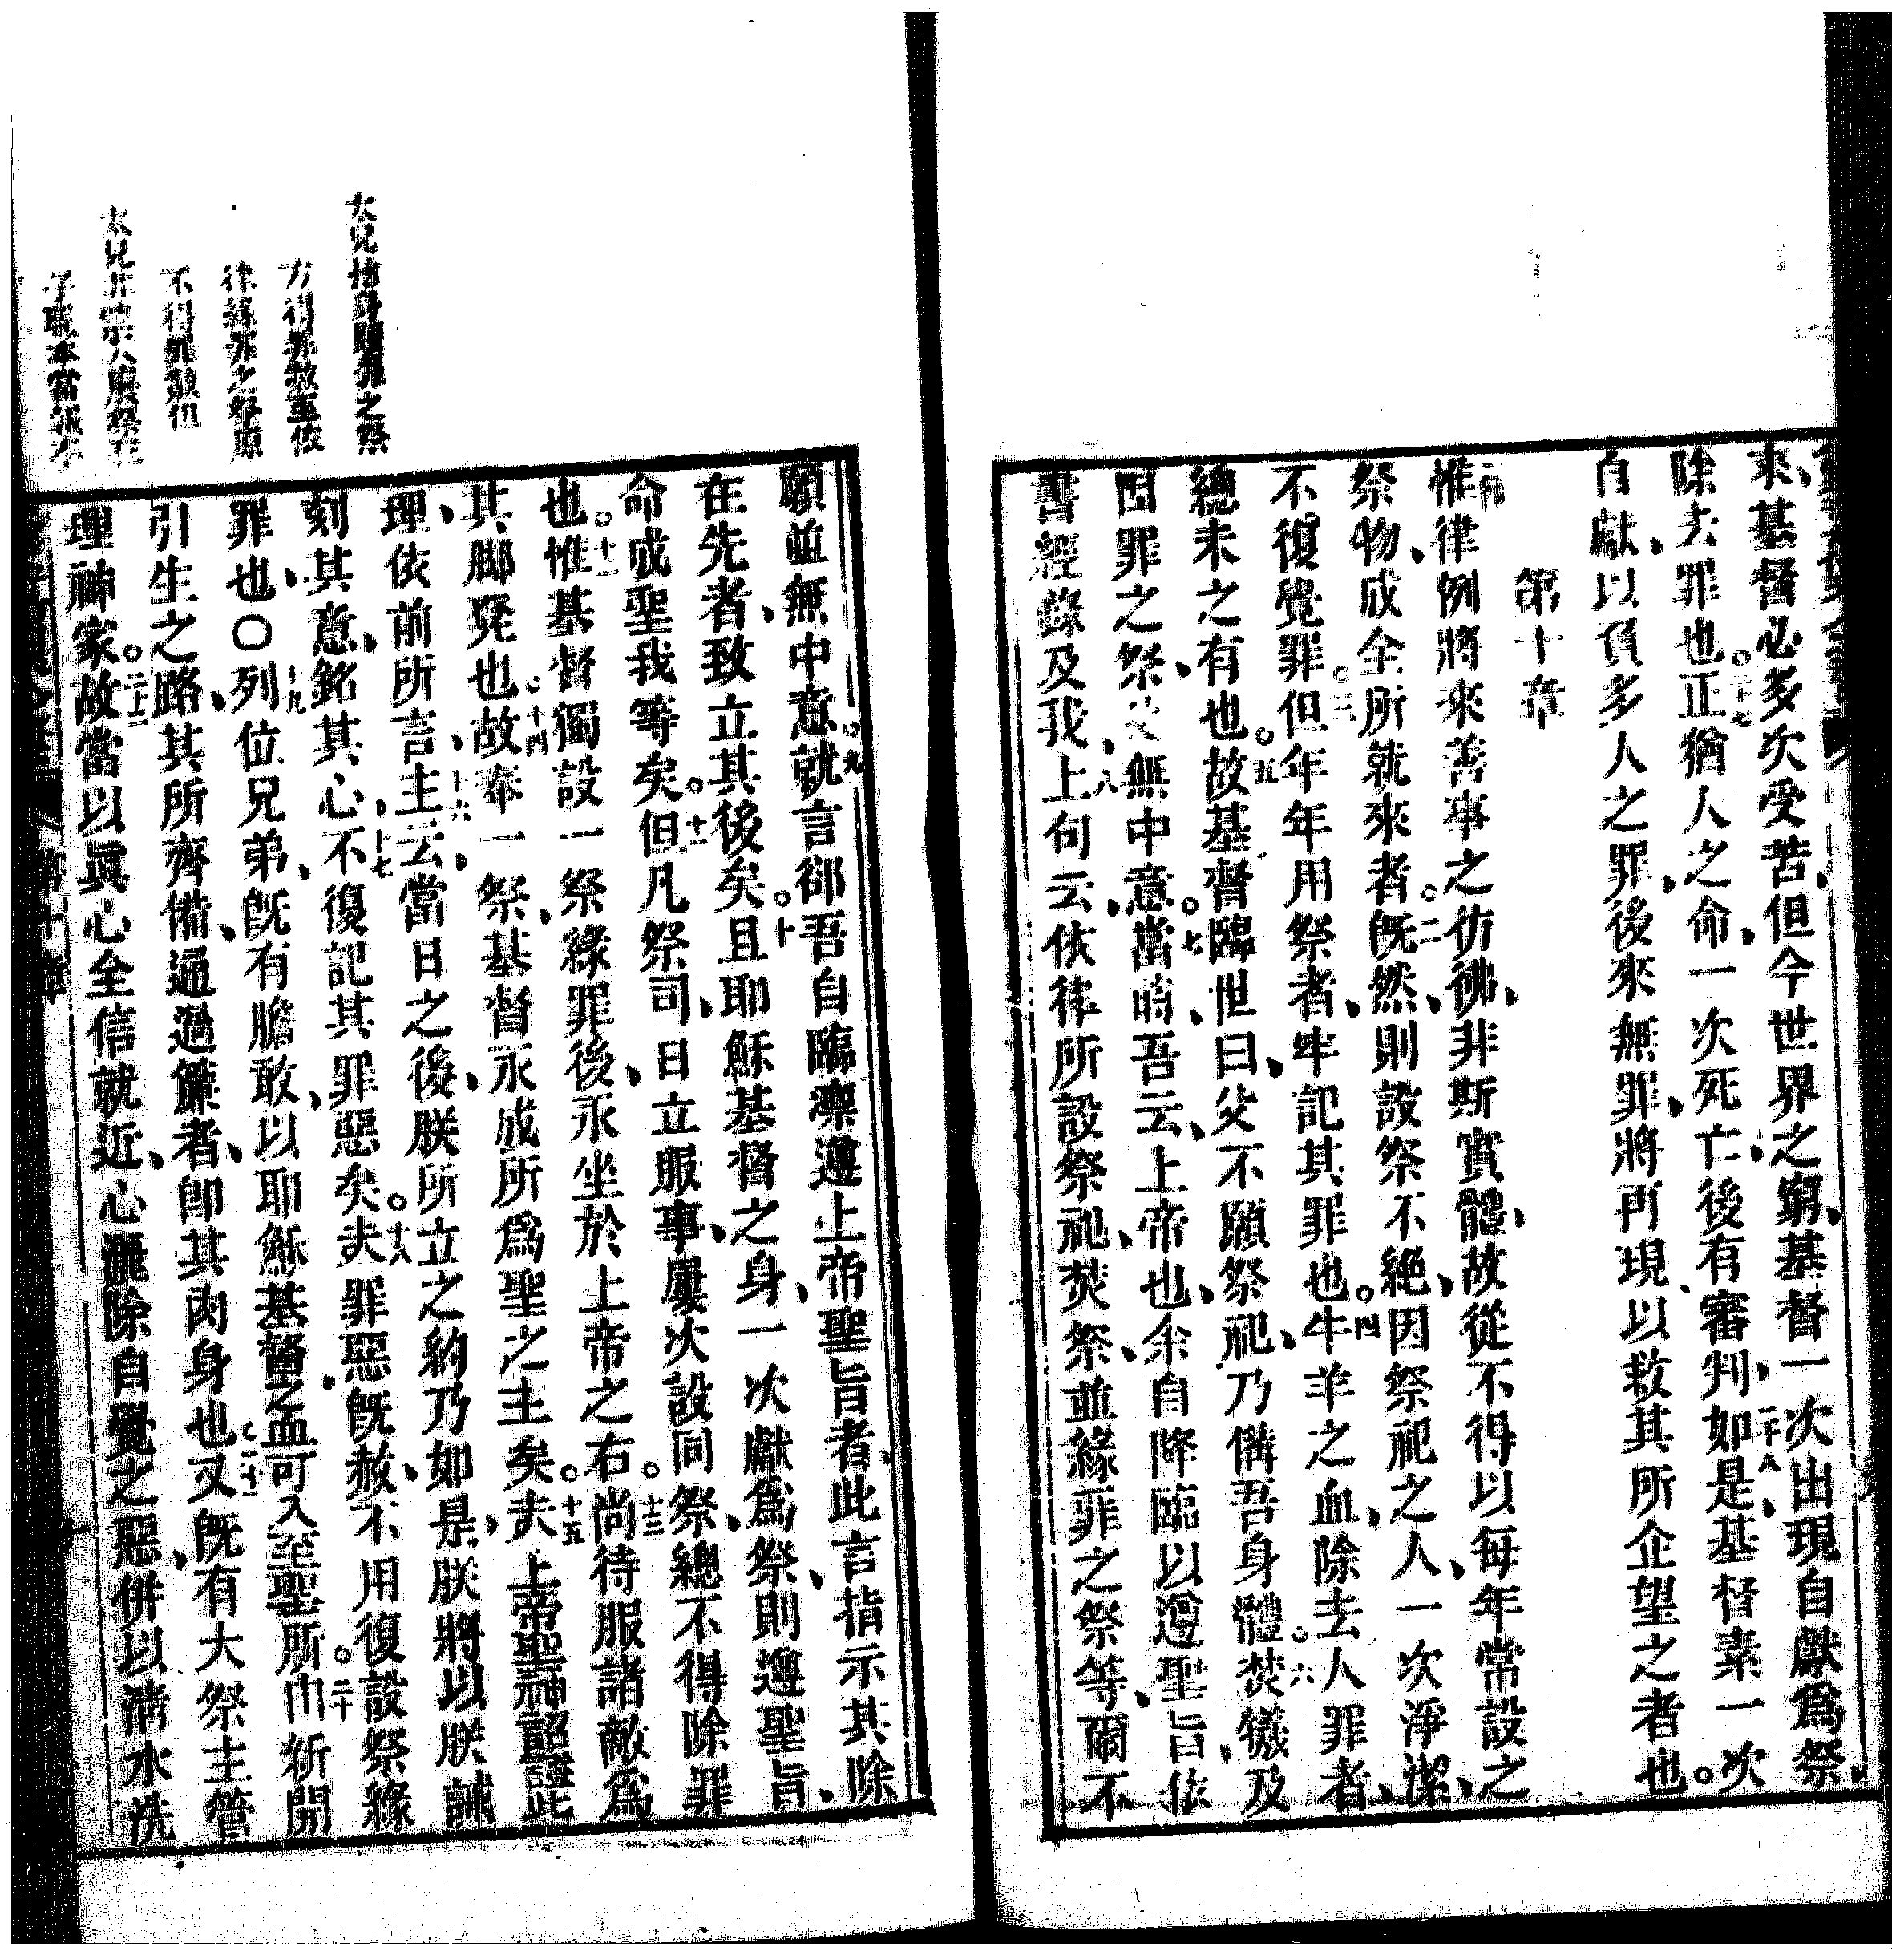 來基督必多次受苦但今世界之窮基督一次出現自獻爲祭
除去罪也。二十七正猶人之命一次死亡後有審判二十八如是基督素一次
自獻以負多人之罪後來無罪將再現以救其所企望之者也。
第十章
惟律例將來善事之彷彿非斯實體故從不得以每年常設之
祭物成全所就來者。二旣然則設祭不絶因祭祀之人一次淨潔
不復覺罪。三但年年用祭者年記其罪也。四牛羊之血除去人罪者
總未之有也。五故基督臨世曰父不願祭祀乃備吾身體。六焚犧及
因罪之祭父無中意。七當時吾云上帝也余自降臨以遵聖旨依
書經錄及我八上句云依律所設祭祀焚祭並緣罪之祭等爾不
願並無中意。九就言卻吾自臨凜遵上帝聖旨者此言指示其除
在先者致立其後矣。十且耶穌基督之身一次獻爲祭則遵聖旨
命成聖我等矣。十一但凡祭司日立服事屢次設同祭總不得除罪
也。十二惟基督獨設一祭緣罪後永坐於上帝之右。十三尚待服諸敵爲
其脚凳也。十四故奉一祭基督永成所爲聖之主矣。十五夫上帝聖神詔證此
理依前所言十六主云當日之後朕所立之約乃如是朕將以朕誡
刻其意銘其心十七不復記其罪惡矣。十八夫罪惡旣赦不用復設祭緣
罪也〇十九列位兄弟旣有膽敢以耶穌基督之血可入至聖所。二十巾新開
引生之路其所齊備通過簾者卽其肉身也。二十一又旣有大祭主管
理神家。二十二故當以眞心全信就近心灑除自覺之惡併以淸水洗
太兄捨身贖罪之祭
方得罪赦至依
律緣罪之祭原
不得罪赦但